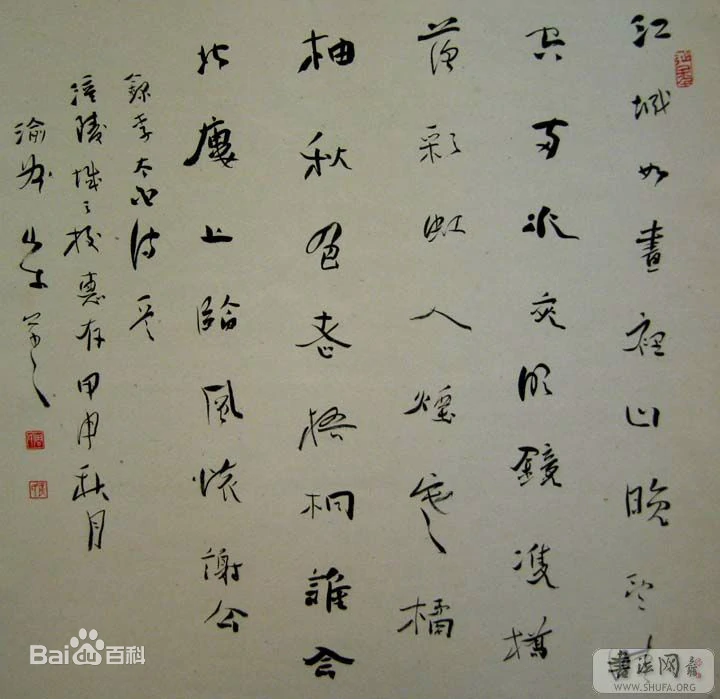 江城如畫裡山晚望晴
空兩水夾明鏡雙橋
落彩虹人煙寒橘
柚秋色老梧桐誰念
北樓上臨風懷謝公
錄李太白詩
陵城校惠存甲申秋月
渝州
Baidu百科
書法网
WWW.SHUFA.ORG